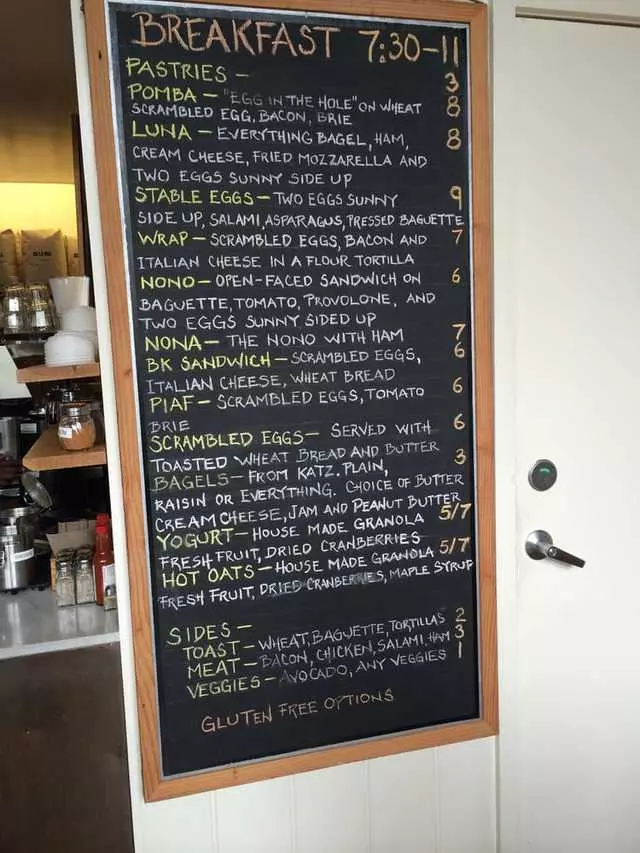 BREAKFAST 7:30-11
PASTRIES - 3
POMBA - "EGG IN THE HOLE" ON WHEAT 8
SCRAMBLED EGG, BACON, BRIE
LUNA - EVERYTHING BAGEL, HAM, 8
CREAM CHEESE, FRIED MOZZARELLA AND
TWO EGGS SUNNY SIDE UP
STABLE EGGS - TWO EGGS SUNNY 9
SIDE UP, SALAMI, ASPARAGUS, PRESSED BAGUETTE
WRAP - SCRAMBLED EGGS, BACON AND 7
ITALIAN CHEESE IN A FLOUR TORTILLA
NONO - OPEN-FACED SANDWICH ON 6
BAGUETTE, TOMATO, PROVOLONE, AND
TWO EGGS SUNNY SIDED UP
NONA - THE NONO WITH HAM 7
BK SANDWICH - SCRAMBLED EGGS, 6
ITALIAN CHEESE, WHEAT BREAD
PIAF - SCRAMBLED EGGS, TOMATO 6
BRIE
SCRAMBLED EGGS - SERVED WITH 6
TOASTED WHEAT BREAD AND BUTTER
BAGELS - FROM KATZ. PLAIN, 3
RAISIN OR EVERYTHING. CHOICE OF BUTTER
CREAM CHEESE, JAM AND PEANUT BUTTER
YOGURT - HOUSE MADE GRANOLA 5/7
FRESH FRUIT, DRIED CRANBERRIES
HOT OATS - HOUSE MADE GRANOLA 5/7
FRESH FRUIT, DRIED CRANBERRIES, MAPLE SYRUP
SIDES -
TOAST - WHEAT, BAGUETTE, TORTILLAS 2
MEAT - BACON, CHICKEN, SALAMI, HAM 3
VEGGIES - AVOCADO, ANY VEGGIES 1
GLUTEN FREE OPTIONS